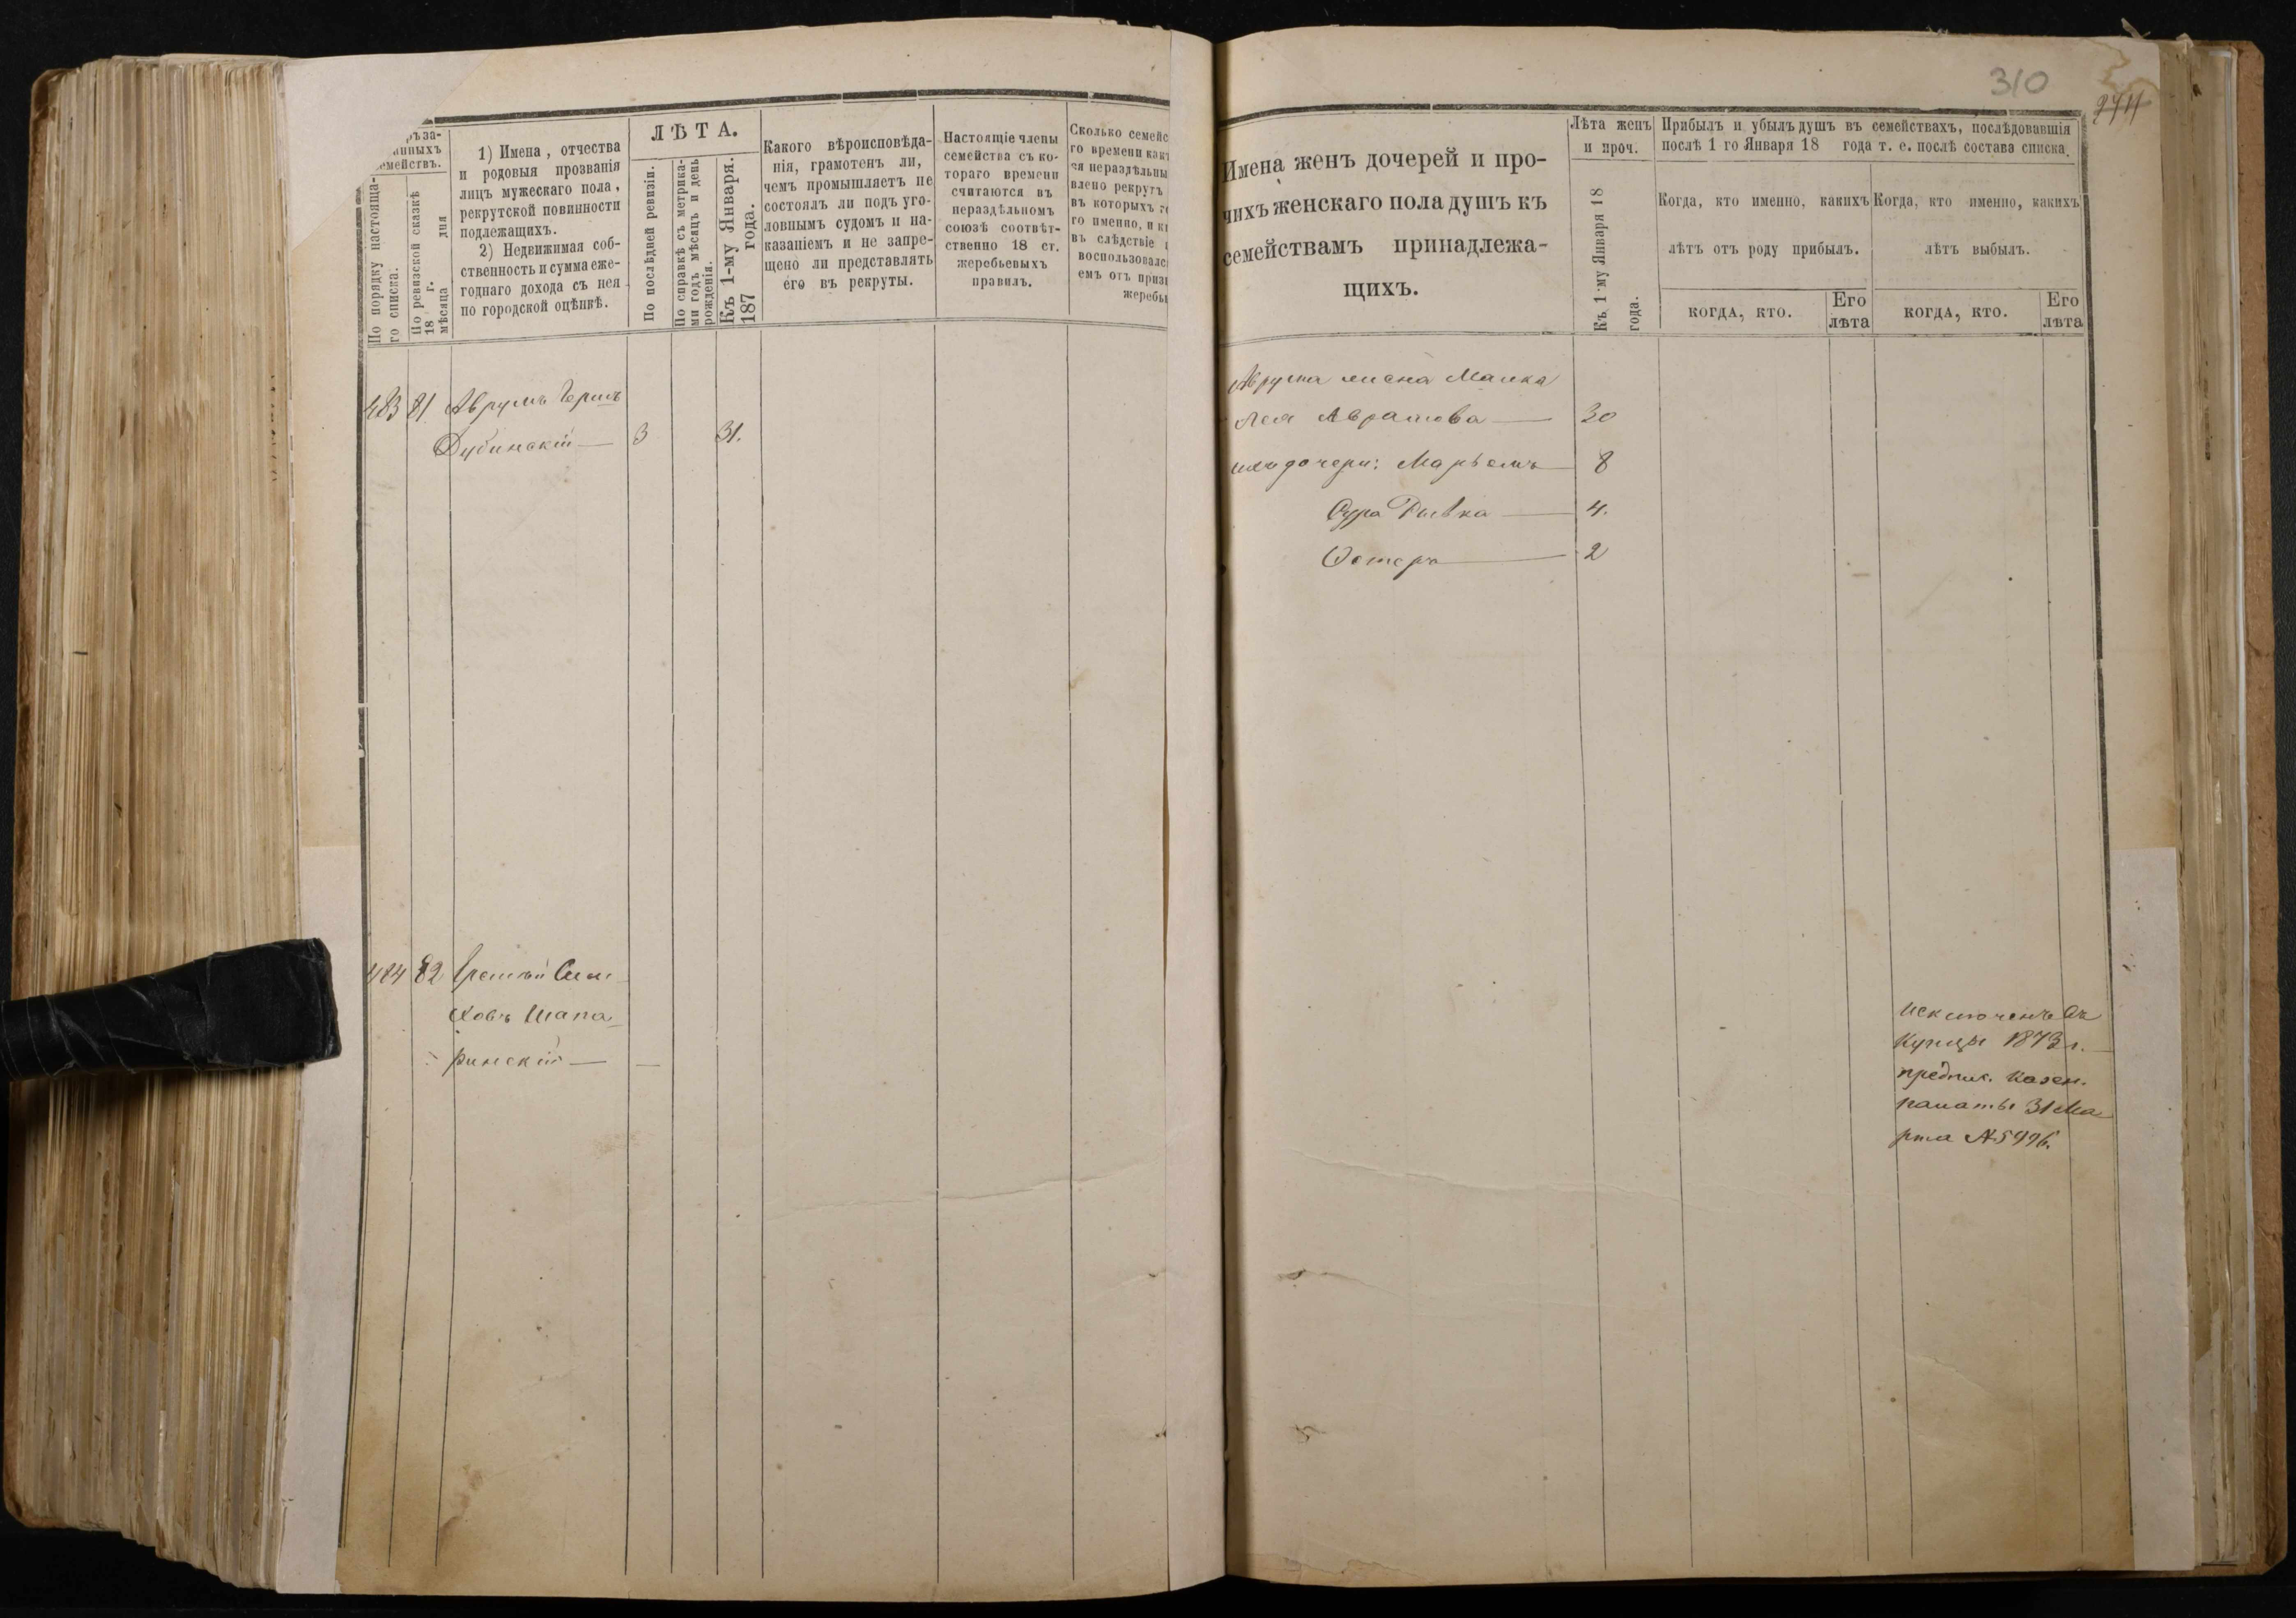 310
2711
ръ за-
анныхъ
семействъ.
По порядку настояща-
го списка.
По ревизской сказкѣ
18 г.
мѣсяца дня
1) Имена, отчества
и родовыя прозванія
лицъ мужескаго пола,
рекрутской повинности
подлежащихъ.
2) Недвижимая соб-
ственность и сумма еже-
годнаго дохода съ нея
по городской оцѣнкѣ.
ЛѢТА.
По послѣдней ревизіи.
По справкѣ съ метрика-
ми годъ мѣсяцъ и день
рожденія.
Къ 1-му Января.
187 года.
Какого вѣроисповѣда-
нія, грамотенъ ли,
чемъ промышляетъ не
состоялъ ли подъ уго-
ловнымъ судомъ и на-
казаніемъ и не запре-
щено ли представлять
его въ рекруты.
Настоящіе члены
семейства съ ко-
тораго времени
считаются въ
нераздѣльномъ
союзѣ соотвѣт-
ственно 18 ст.
жеребьевыхъ
правилъ.
Сколько семейс
го времени как
ся нераздѣльны
влено рекрутъ
въ которыхъ г
го именно, и к
въ слѣдствіе
воспользовалс
емъ отъ приз
жеребь
483 81 Аврумъ Герш
Дубинскій — 3 31.
484 82
ховъ Шапа-
ринскій —
Имена женъ дочерей и про-
чихъ женскаго пола душъ къ
семействамъ принадлежа-
щихъ.
Лѣта женъ
и проч.
Къ 1 му Января 18
года.
Прибылъ и убылъ душъ въ семействахъ, послѣдовавшія
послѣ 1 го Января 18 года т. е. послѣ состава списка.
Когда, кто именно, какихъ
лѣтъ отъ роду прибылъ.
КОГДА, КТО.
Его
лѣта
Когда, кто именно, какихъ
лѣтъ выбылъ.
КОГДА, КТО.
Его
лѣта
Аврума жена Малка
Лея Абрамова — 30
ихъ дочери: Марьемъ — 8
Сура Ривка — 4.
Эстеръ — 2
исключенъ въ
купцы 1873 г.
предпис. Казен.
палаты 31 Ма
рта №5996.